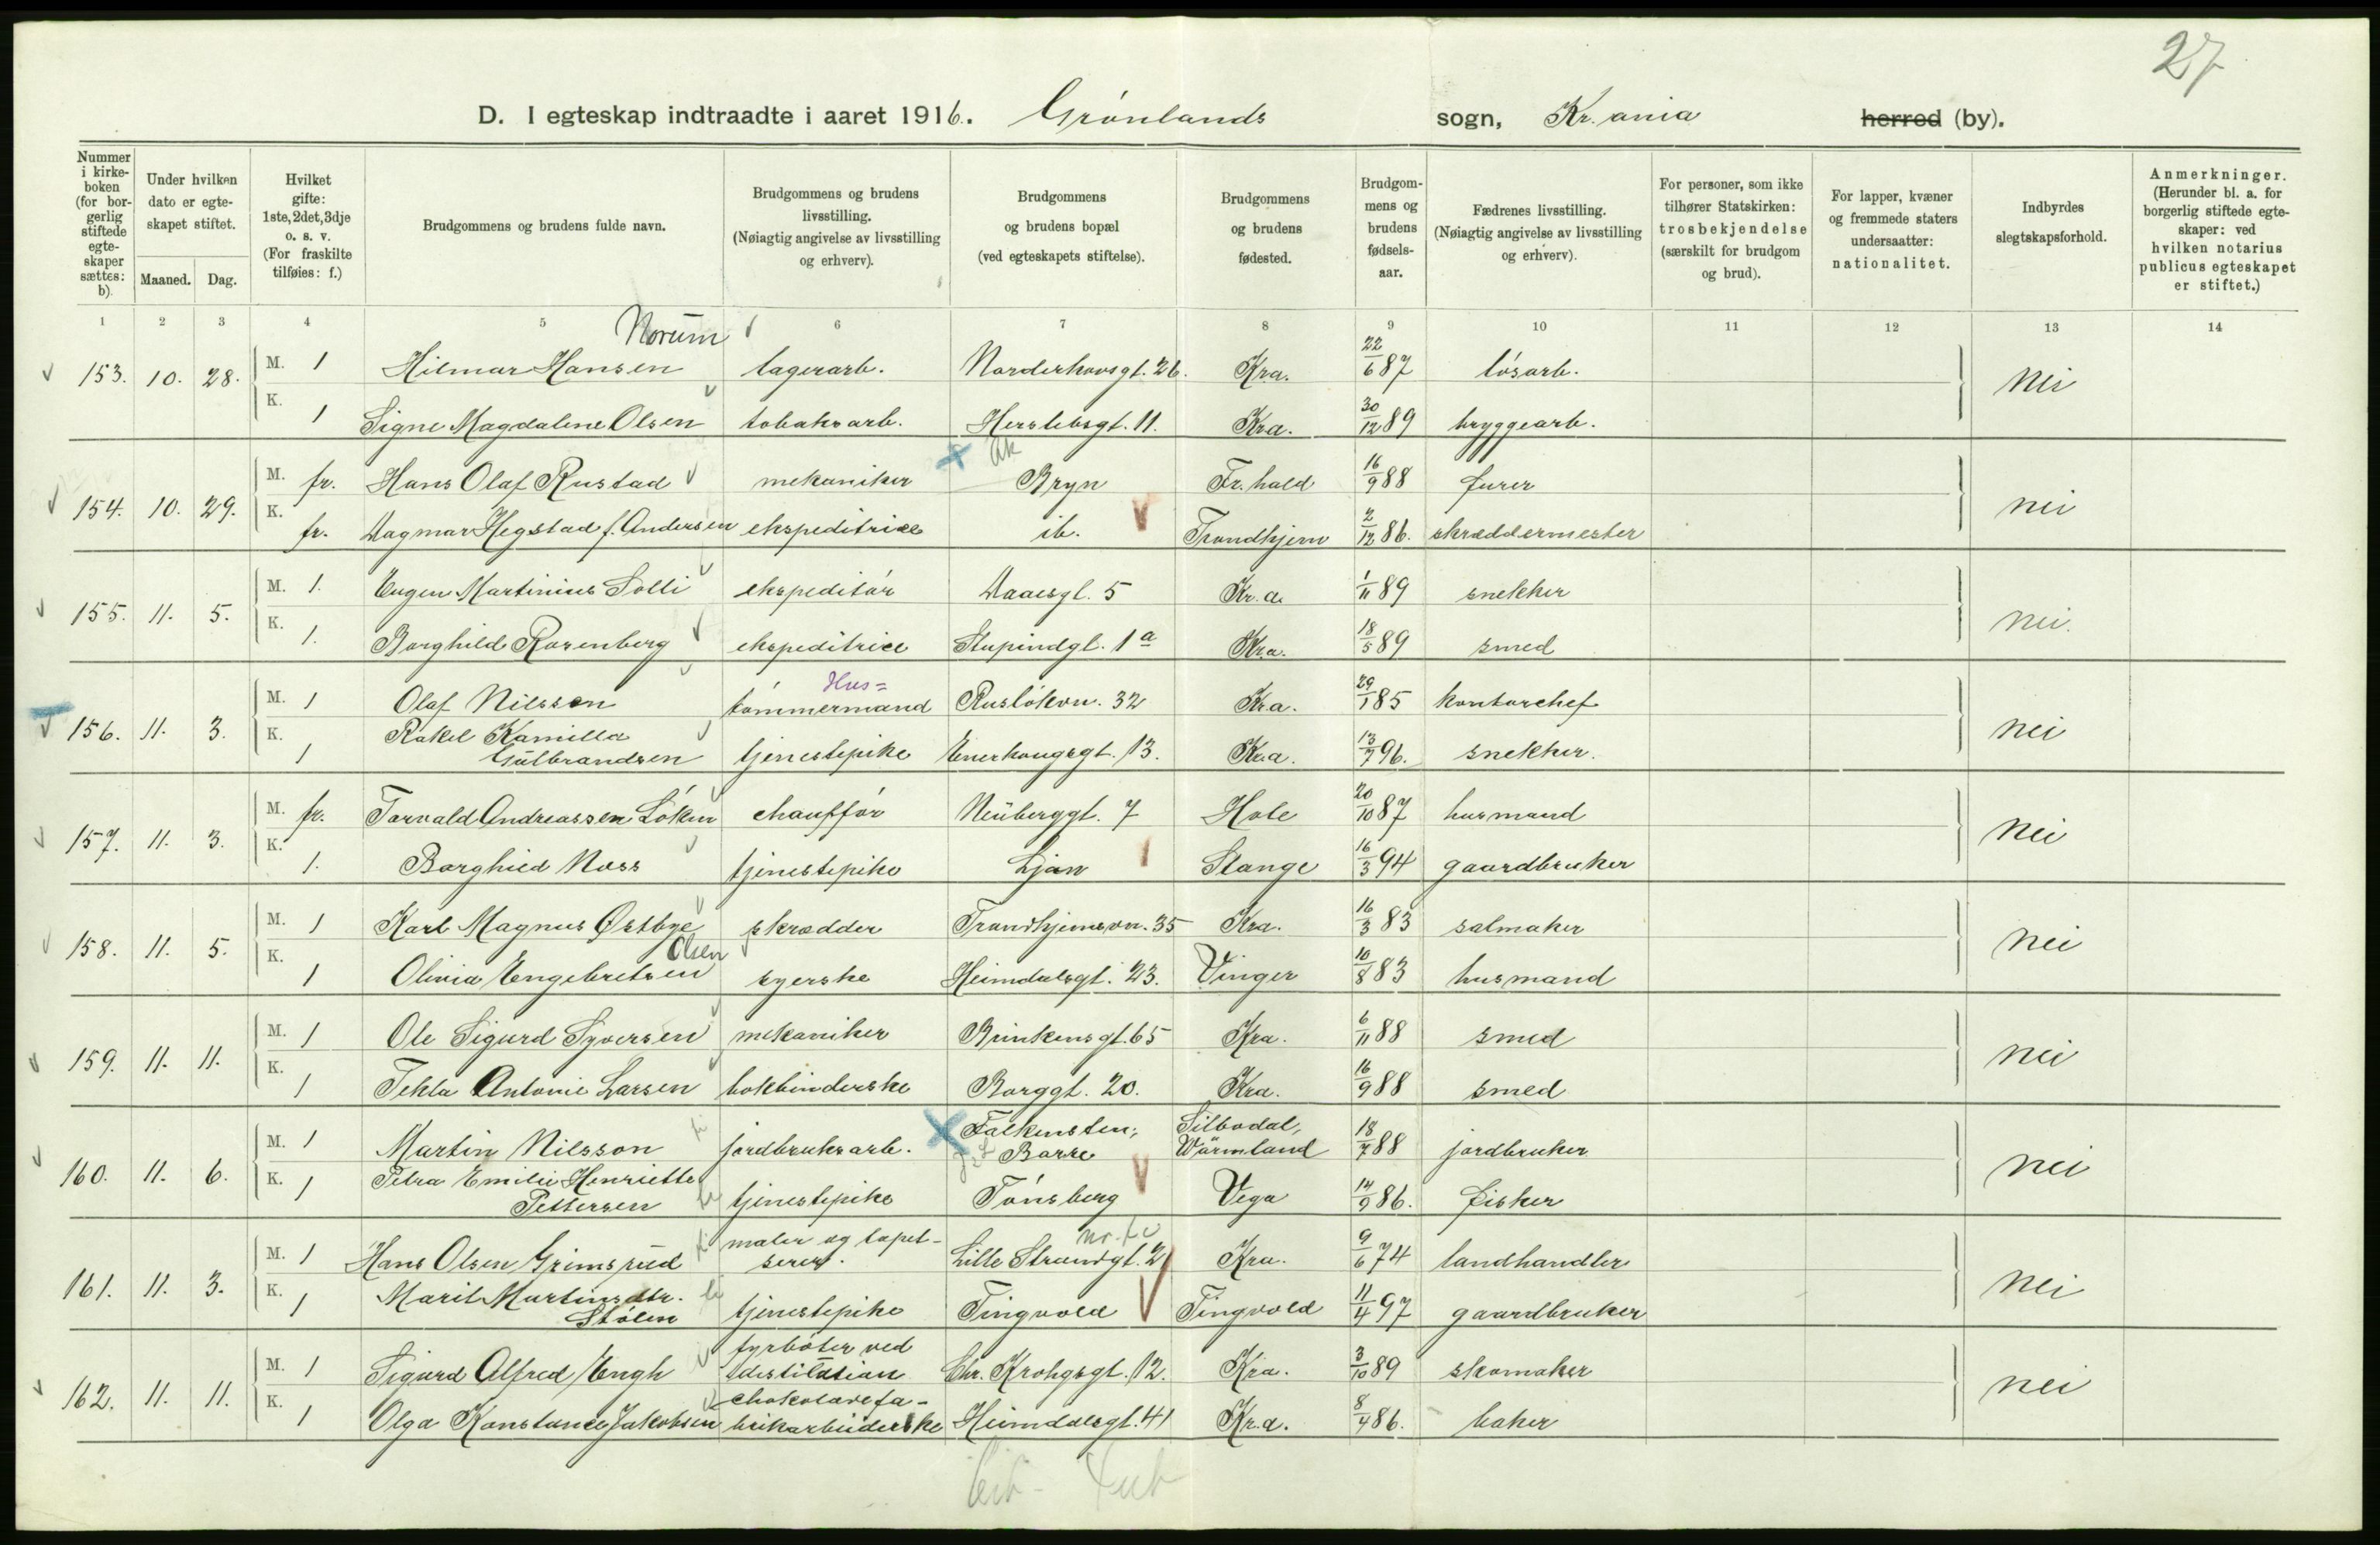 27
D. I egteskap indtraadte i aaret 1916. Grønlands sogn, Kr.ania herred (by).
Nummer i kirkeboken (for borgerlig stiftede egteskaper sættes: b).
Under hvilken dato er egteskapet stiftet.
Maaned. Dag.
Hvilket gifte: 1ste, 2det, 3dje o. s. v. (For fraskilte tilføies: f.)
Brudgommens og brudens fulde navn.
Brudgommens og brudens livsstilling. (Nøiagtig angivelse av livsstilling og erhverv).
Brudgommens og brudens bopæl (ved egteskapets stiftelse).
Brudgommens og brudens fødested.
Brudgommens og brudens fødselsaar.
Fædrenes livsstilling. (Nøiagtig angivelse av livsstilling og erhverv).
For personer, som ikke tilhører Statskirken: trosbekjendelse (særskilt for brudgom og brud).
For lapper, kvæner og fremmede staters undersaatter: nationalitet.
Indbyrdes slegtskapsforhold.
Anmerkninger. (Herunder bl. a. for borgerlig stiftede egteskaper: ved hvilken notarius publicus egteskapet er stiftet.)
1 2 3 4 5 6 7 8 9 10 11 12 13 14
Norum
153. 10. 28. M. 1 Hilmar Hansen lagerarb. Norderhovsgt. 26. Kra. 22/6 87 løsarb. nei
K. 1 Signe Magdalene Olsen tobaksarb. Herslebsgt. 11. Kra. 30/12 89 bryggearb.
Ak
154. 10. 29. M. fr. Hans Olaf Rustad mekaniker Bryn Fr.hald 16/9 88 furer nei
K. fr. Dagmar Hegstad f. Andersen ekspeditrice ib. Trondhjem 2/12 86. skræddermester
155. 11. 5. M. 1. Eugen Martinius Solli ekspeditør Daaesgt. 5 Kr.a. 1/11 89 snekker nei.
K. 1. Borghild Rosenberg ekspeditrice Stupindgt. 1a Kra. 18/5 89 smed
Hus=
156. 11. 3. M. 1 Olaf Nilssen tømmermand Rusløkvn. 32 Kra. 29/1 85 kontorchef nei
K. 1 Rakel Kamilla Gulbrandsen tjenestepike Enerhougsgt. 13. Kra. 13/7 96. snekker.
157. 11. 3. M. fr. Torvald Andreassen Løken chauffør Neuberggt. 7 Hole 20/10 87 husmand nei
K. 1. Borghild Noss tjenestepike Ljan Stange 16/3 94 gaardbruker
158. 11. 5. M. 1 Karl Magnus Østbye skrædder Trondhjemsvn. 35 Kra. 16/3 83 salmaker nei
Olsen
K. 1 Olivia Engebretsen syerske Heimdalsgt. 23. Vinger 10/8 83 husmand
159. 11. 11. M. 1 Ole Sigurd Syversen mekaniker Brinkensgt. 65 Kra. 6/11 88 smed nei
K. 1 Tekla Antonie Larsen bokbinderske Borggt. 20. Kra. 16/9 88 smed
160. 11. 6. M. 1 Martin Nilsson jordbruksarb. Falkensten, Borre Silbodal, Wärmland 18/7 88 jordbruker nei
K. 1 Petra Emilie Henriette Pettersen tjenestepike Tønsberg Vega 14/9 86. fisker
161. 11. 3. M. 1 Hans Olsen Grimsrud maler og tapetserer. Lille Strandgt. 2 Kra. 9/6 74 landhandler nei
K. 1 Marit Martinsdtr. Stølen tjenestepike Tingvold Tingvold 11/4 97 gaardbruker
162. 11. 11. M. 1 Sigurd Alfred Engh fyrbøter ved destilation Chr. Krohgsgt. 12. Kra. 3/10 89 skomaker nei
K. 1 Olga Konstance Jakobsen chokoladefabrikarbeiderske Heimdalsgt. 41 Kr.a. 8/4 86. baker